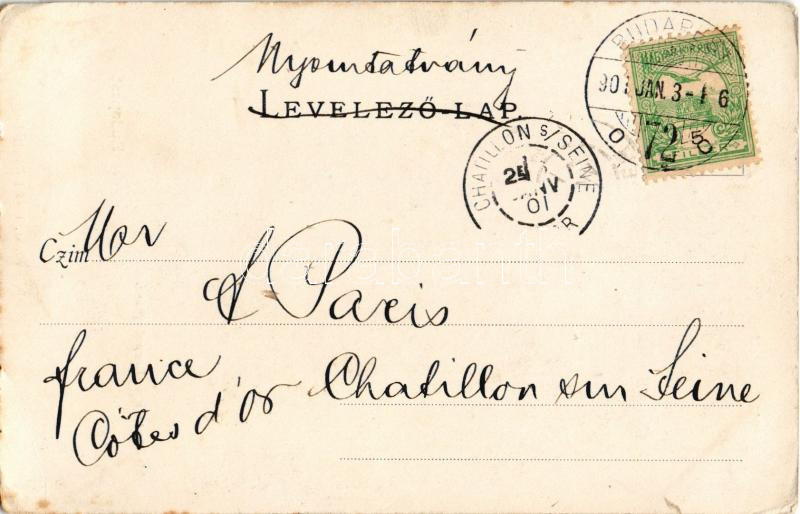 Nyomtatvány
LEVELEZŐ-LAP.
BUDAPE
901 JAN. 3
72
CHATILLON S/SEINE
JANV
01
Czim
Mor
A Paris
france
Chatillon sur Seine
Côtes d'or